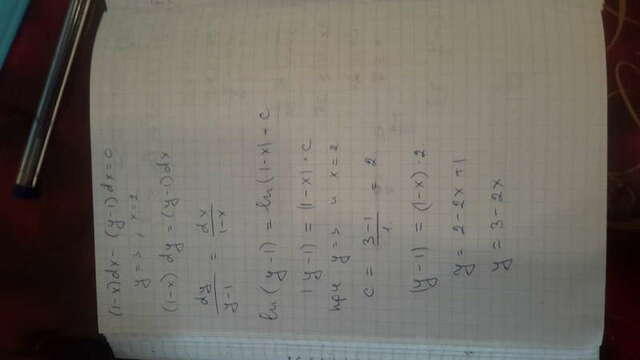 (1-x)dx - (y-1)dx=0
y=3, x=2
(1-x) dy = (y-1)dx
dy/y-1 = dx/1-x
ln(y-1) = ln(1-x)+C
(y-1) = (1-x)·C
при y=3 и x=2
C = 3-1/1 = 2
(y-1) = (1-x)·2
y = 2-2x+1
y = 3-2x